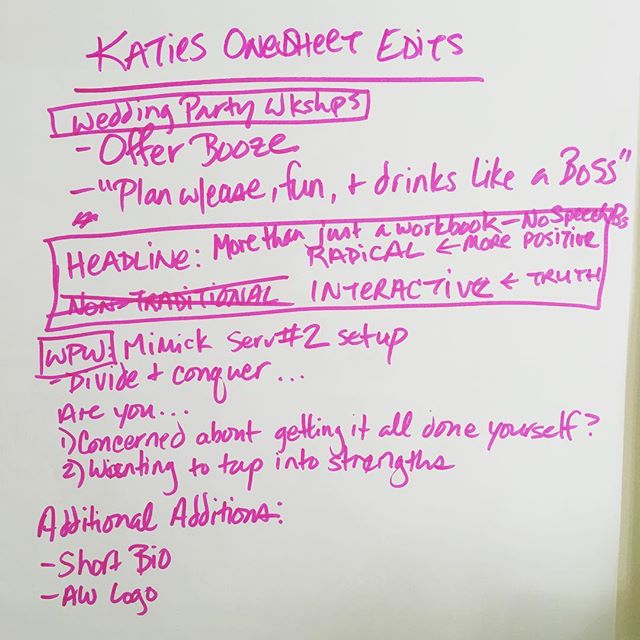 KATIES ONESHEET EDITS
Wedding Party Wkshps
- Offer Booze
- "Plan w/ease, fun, + drinks like a BOSS"
HEADLINE: More than just a workbook - No Speech
RADICAL ← MORE POSITIVE
NON-TRADITIONAL INTERACTIVE ← TRUTH
WPW: Mimick serv #2 setup
- Divide + conquer...
Are you...
1) Concerned about getting it all done yourself?
2) Wanting to tap into strengths
Additional Additions:
- Short Bio
- AW Logo